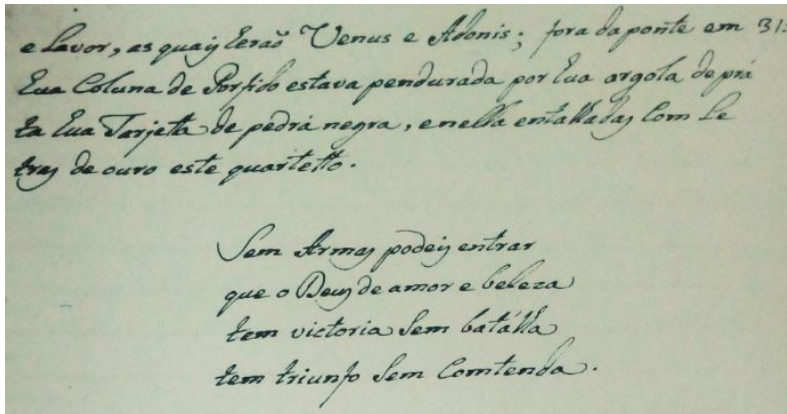 e Lavor, as quais eraõ Venus e Adonis; fora da ponte em 31
hua Coluna de Porfido estava pendurada por hua argola de prá
ta hua Tarjetta de pedra negra, e nella entalladas com Le
tras de ouro este quartetto.
Sem Armas podeis entrar
que o Deus de amor e beleza
tem victoria sem batálla
tem triunfo sem Comtenda.